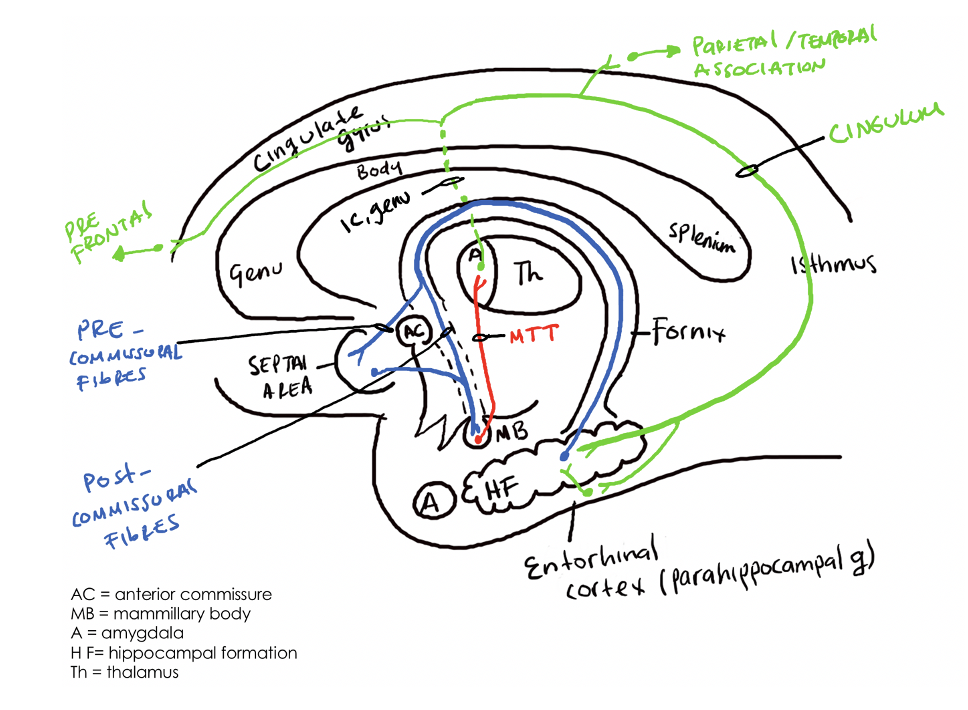 PARIETAL/TEMPORAL
ASSOCIATION
CINGULUM
Cingulate
gyrus
Body
IC, genu
PRE
FRONTAL
Genu
Splenium
Isthmus
A
Th
AC
MTT
Fornix
PRE-
COMMISSURAL
FIBRES
SEPTAL
AREA
MB
POST-
COMMISSURAL
FIBRES
A
HF
Entorhinal
cortex (parahippocampal g)
AC = anterior commissure
MB = mammillary body
A = amygdala
H F= hippocampal formation
Th = thalamus